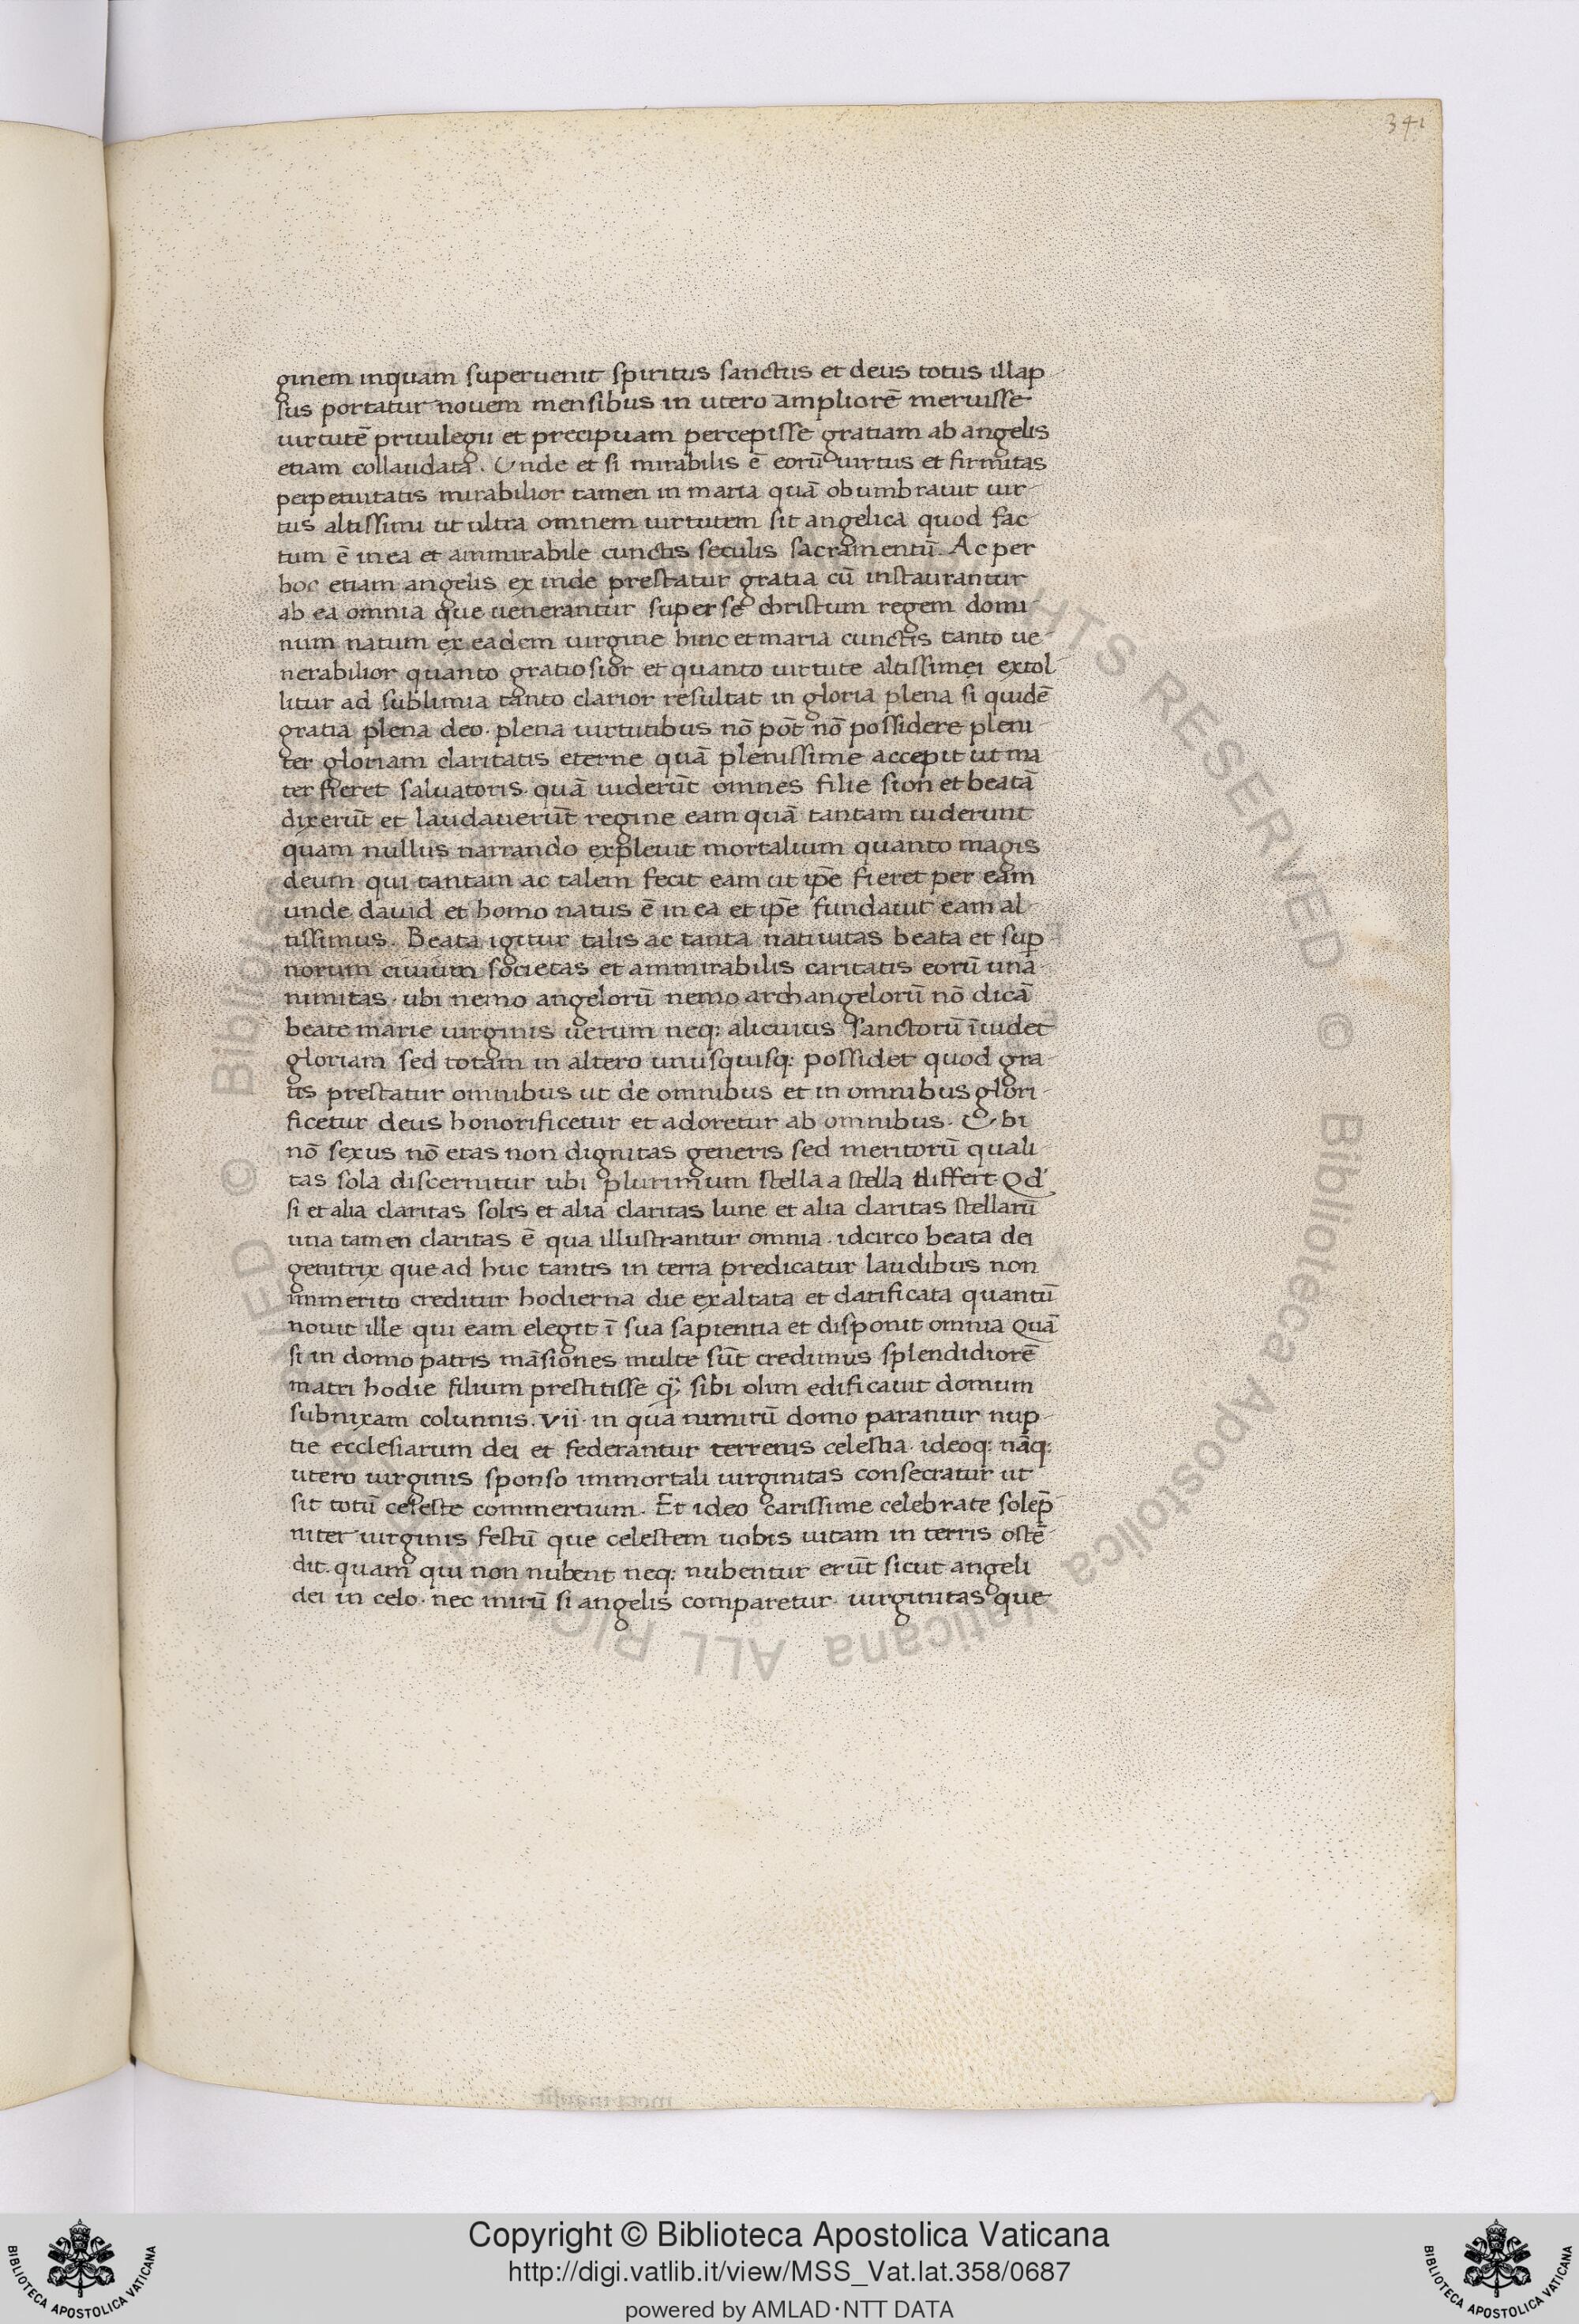 341
ginem inquam superuenit spiritus sanctus et deus totus illap
sus portatur nouem mensibus in utero ampliorē meruisse
uirtutē priuilegii et precipuam percepisse gratiam ab angelis
etiam collaudata. Unde et si mirabilis ē eorū uirtus et firmitas
perpetuitatis mirabilior tamen in maria quā obumbrauit uir
tus altissimi ut ultra omnem uirtutem sit angelica quod fac
tum ē in ea et ammirabile cunctis seculis sacramentū. Ac per
hoc etiam angelis ex inde prestatur gratia cū instaurantur
ab ea omnia que uenerantur super se christum regem domi
num natum ex eadem uirgine hinc et maria cunctis tanto ue
nerabilior quanto gratiosior et quanto uirtute altissimei extol
litur ad sublimia tanto clarior resultat in gloria plena si quidē
gratia plena deo. plena uirtutibus nō pōt nō possidere pleni
ter gloriam claritatis eterne quā plenissime accepit ut ma
ter fieret saluatoris. quā uiderūt omnes filie sion et beatā
dixerūt et laudauerūt regine eam quā tantam uiderunt
quam nullus narrando expleuit mortalium quanto magis
deum qui tantam ac talem fecit eam ut ip̄e fieret per eam
unde dauid et homo natus ē in ea et ip̄e fundauit eam al
tissimus. Beata igitur talis ac tanta natiuitas beata et sup̄
norum ciuium societas et ammirabilis caritatis eorū una
nimitas. ubi nemo angelorū nemo archangelorū nō dicā
beate marie uirginis uerum neq: alicuius sanctorū īuidet
gloriam sed totam in altero unusquisq: possidet quod gra
tis prestatur omnibus ut de omnibus et in omnibus glori
ficetur deus honorificetur et adoretur ab omnibus. Ubi
nō sexus nō etas non dignitas generis sed meritorū quali
tas sola discernitur ubi plurimum stella a stella differt Qd'
si et alia claritas solis et alia claritas lune et alia claritas stellarū
una tamen claritas ē qua illustrantur omnia. idcirco beata dei
genitrix que ad huc tantis in terra predicatur laudibus non
immerito creditur hodierna die exaltata et clarificata quantū
nouit ille qui eam elegit ī sua sapientia et disponit omnia Quā
si in domo patris māsiones multe sūt credimus splendidiorē
matri hodie filium prestitisse sibi olim edificauit domum
subnixam colunnis. vii. in qua nimirū domo parantur nup
tie ecclesiarum dei et federantur terrenis celestia. ideoq: nāq:
utero uirginis sponso immortali uirginitas consecratur ut
sit totū celeste commertium. Et ideo carissime celebrate solep̄
niter uirginis festū que celestem uobis uitam in terris ostē
dit. quam qui non nubent neq: nubentur erūt sicut angeli
dei in celo. nec mirū si angelis comparetur. uirginitas que
Copyright © Biblioteca Apostolica Vaticana
http://digi.vatlib.it/view/MSS_Vat.lat.358/0687
powered by AMLAD·NTT DATA
BIBLIOTECA APOSTOLICA VATICANA
BIBLIOTECA APOSTOLICA VATICANA
© Biblioteca Apostolica Vaticana ALL RIGHTS RESERVED